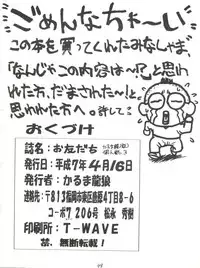 ごめんなちゃ〜い
この本を買ってくれたみなしゃま、
「なんじゃこの内容は〜!?」と思わ
れた方、「だまされた〜!」と
思われた方へ。許して…
おくづけ
誌名:お友だち
発行日:平成7年4月16日
発行者:かるま龍狼
コーポ7 206号
印刷所:T-WAVE
禁、無断転載!